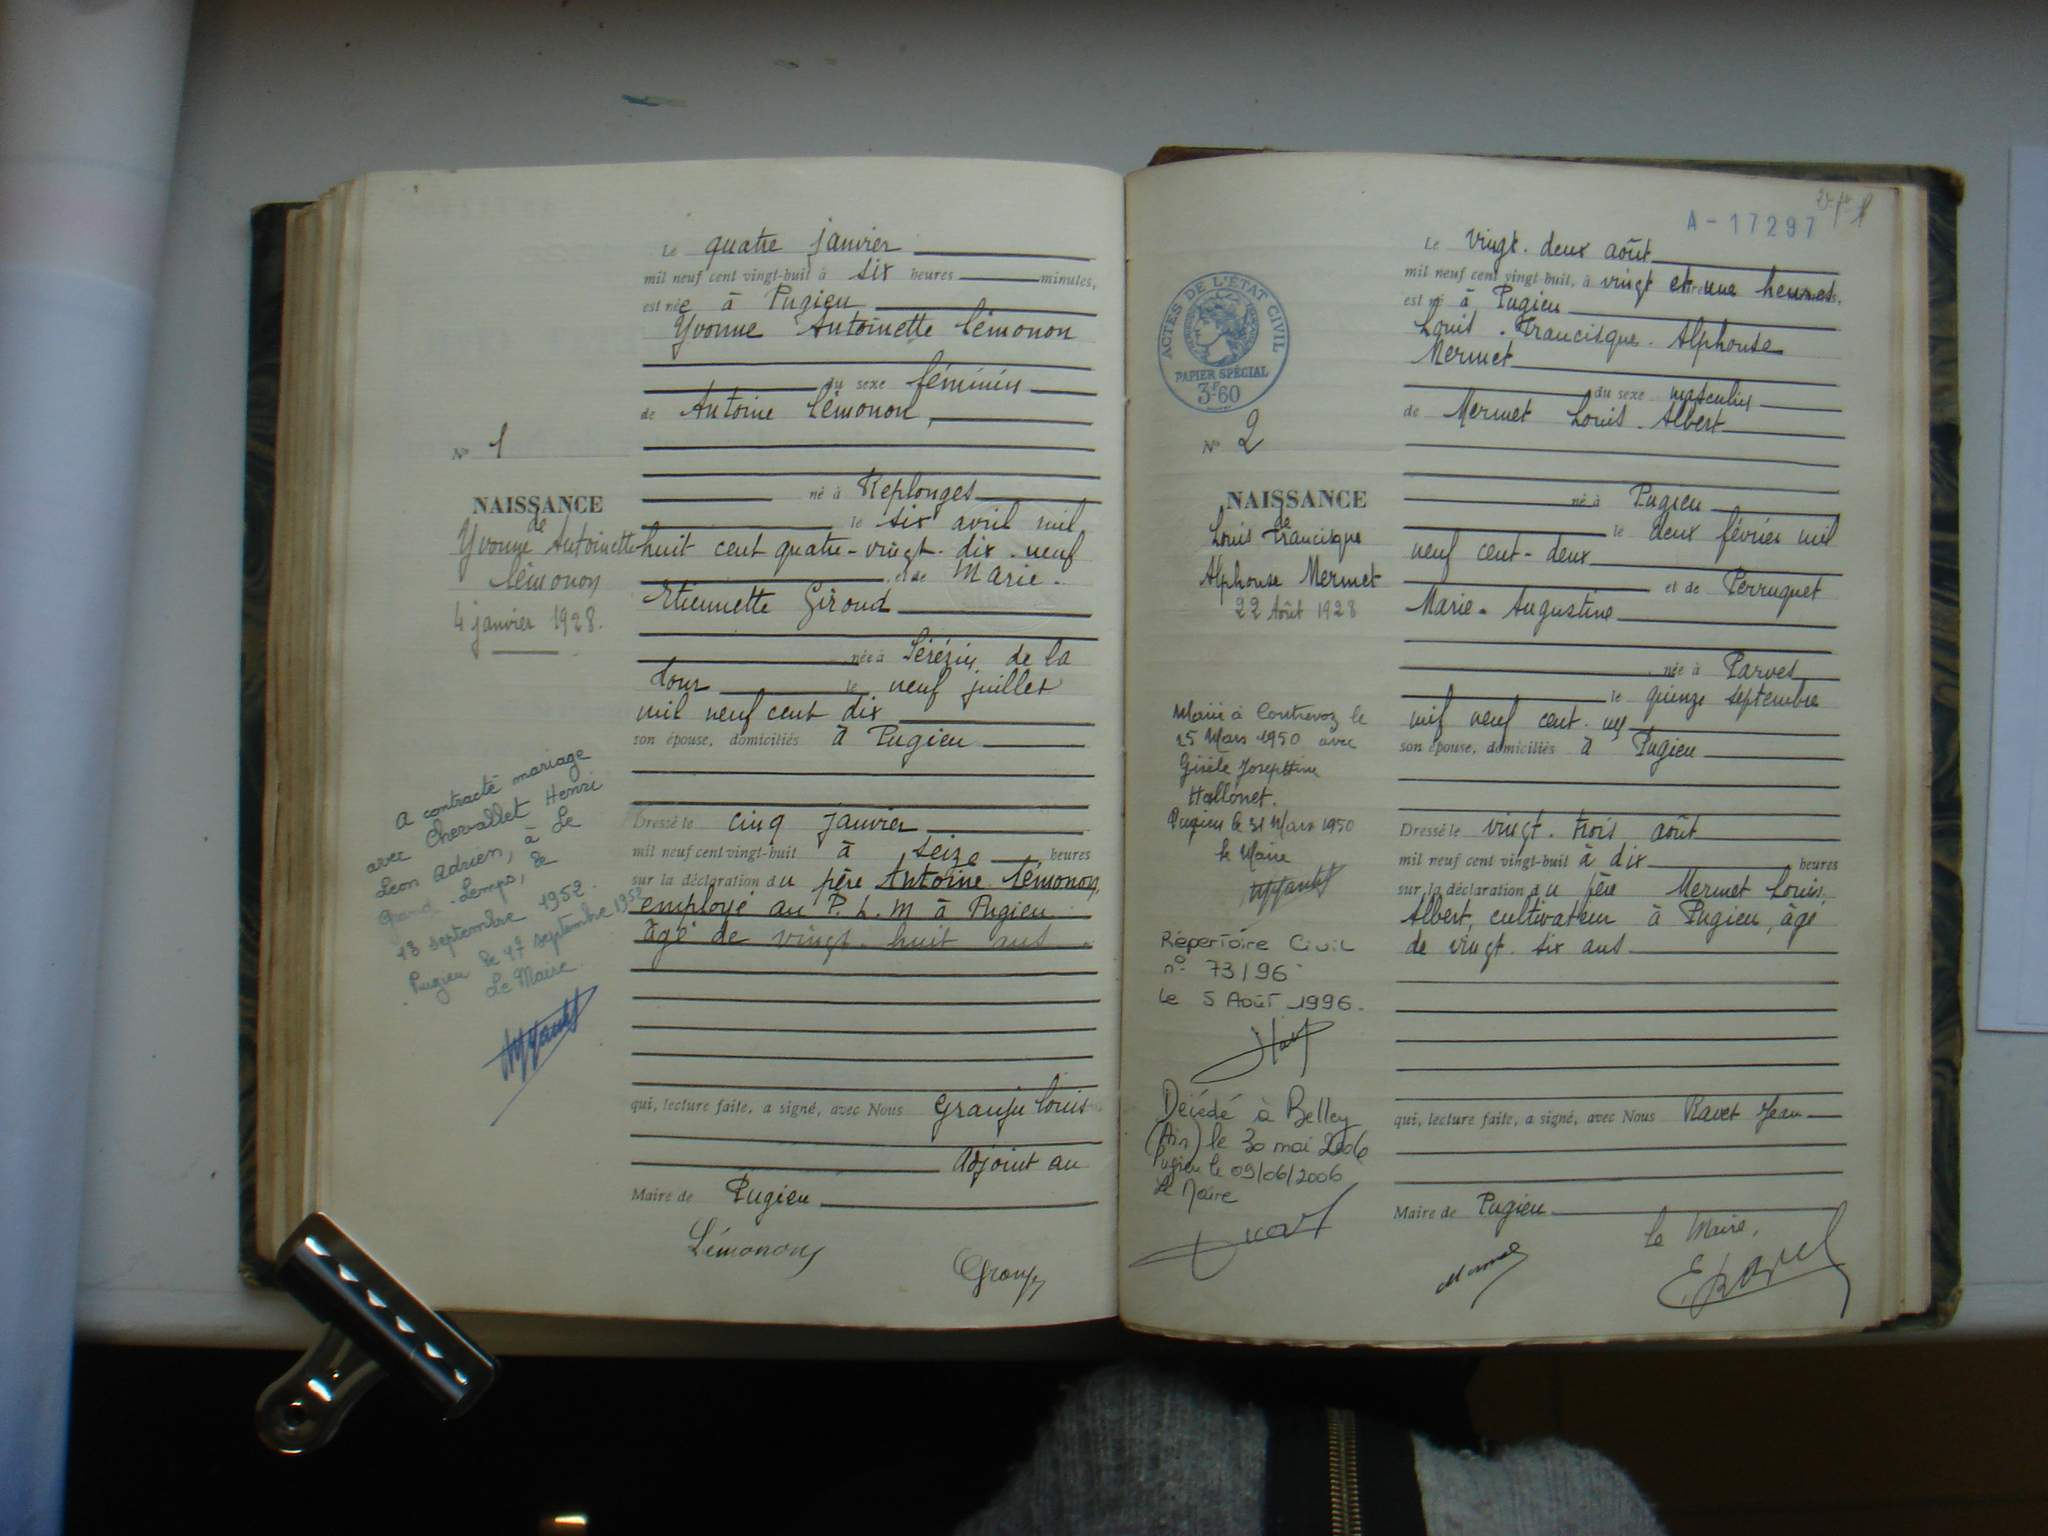 Le quatre janvier
mil neuf cent vingt-huit à six heures minutes,
est née à Pugieu
Yvonne Antoinette Lémonon
du sexe féminin
de Antoine Lémonon,
N° 1
né à Replonges
NAISSANCE
le six avril mil
de
Yvonne Antoinette
huit cent quatre-vingt-dix-neuf
Lémonon
et de Marie-
4 janvier 1928.
Etiennette Giroud
née à Sérézin de la
tour le neuf juillet
mil neuf cent dix
son épouse, domiciliés à Pugieu
A contracté mariage
avec Chevallet Henri
Léon Adrien, à Le
Grand-Lemps, le
13 septembre 1952.
Pugieu le 17 septembre 1952
Le Maire
Dressé le cinq janvier
mil neuf cent vingt-huit à seize heures
sur la déclaration du père Antoine Lémonon,
employé au P. L. M à Pugieu
âgé de vingt-huit ans
qui, lecture faite, a signé, avec Nous Granju Louis
Adjoint au
Maire de Pugieu
Lémonon
A-17297
Le vingt-deux août
mil neuf cent vingt-huit, à vingt et une heures
est né à Pugieu
Louis-Francisque-Alphonse
Mermet
ACTES DE L'ÉTAT CIVIL
PAPIER SPÉCIAL
3F60
du sexe masculin
de Mermet Louis-Albert
N° 2
né à Pugieu
NAISSANCE
de
Louis Francisque
Alphonse Mermet
22 Août 1928
le deux février mil
neuf cent-deux
et de Perruquet
Marie-Augustine
née à Parves
le quinze septembre
mil neuf cent-
son épouse, domiciliés à Pugieu
Marié à Contrevoz le
25 Mars 1950 avec
Gisèle Josephine
Hallonet.
Pugieu le 31 Mars 1950
le Maire
Répertoire Civil
n° 73/96
Le 5 Août 1996.
Décédé à Belley
(Ain) le 30 mai 2006
Pugieu le 09/06/2006
Le Maire
Dressé le vingt-trois août
mil neuf cent vingt-huit à dix heures
sur la déclaration du père Mermet Louis,
Albert, cultivateur à Pugieu, âgé
de vingt-six ans
qui, lecture faite, a signé, avec Nous Ravet Jean
Maire de Pugieu
Le Maire,
Mermet